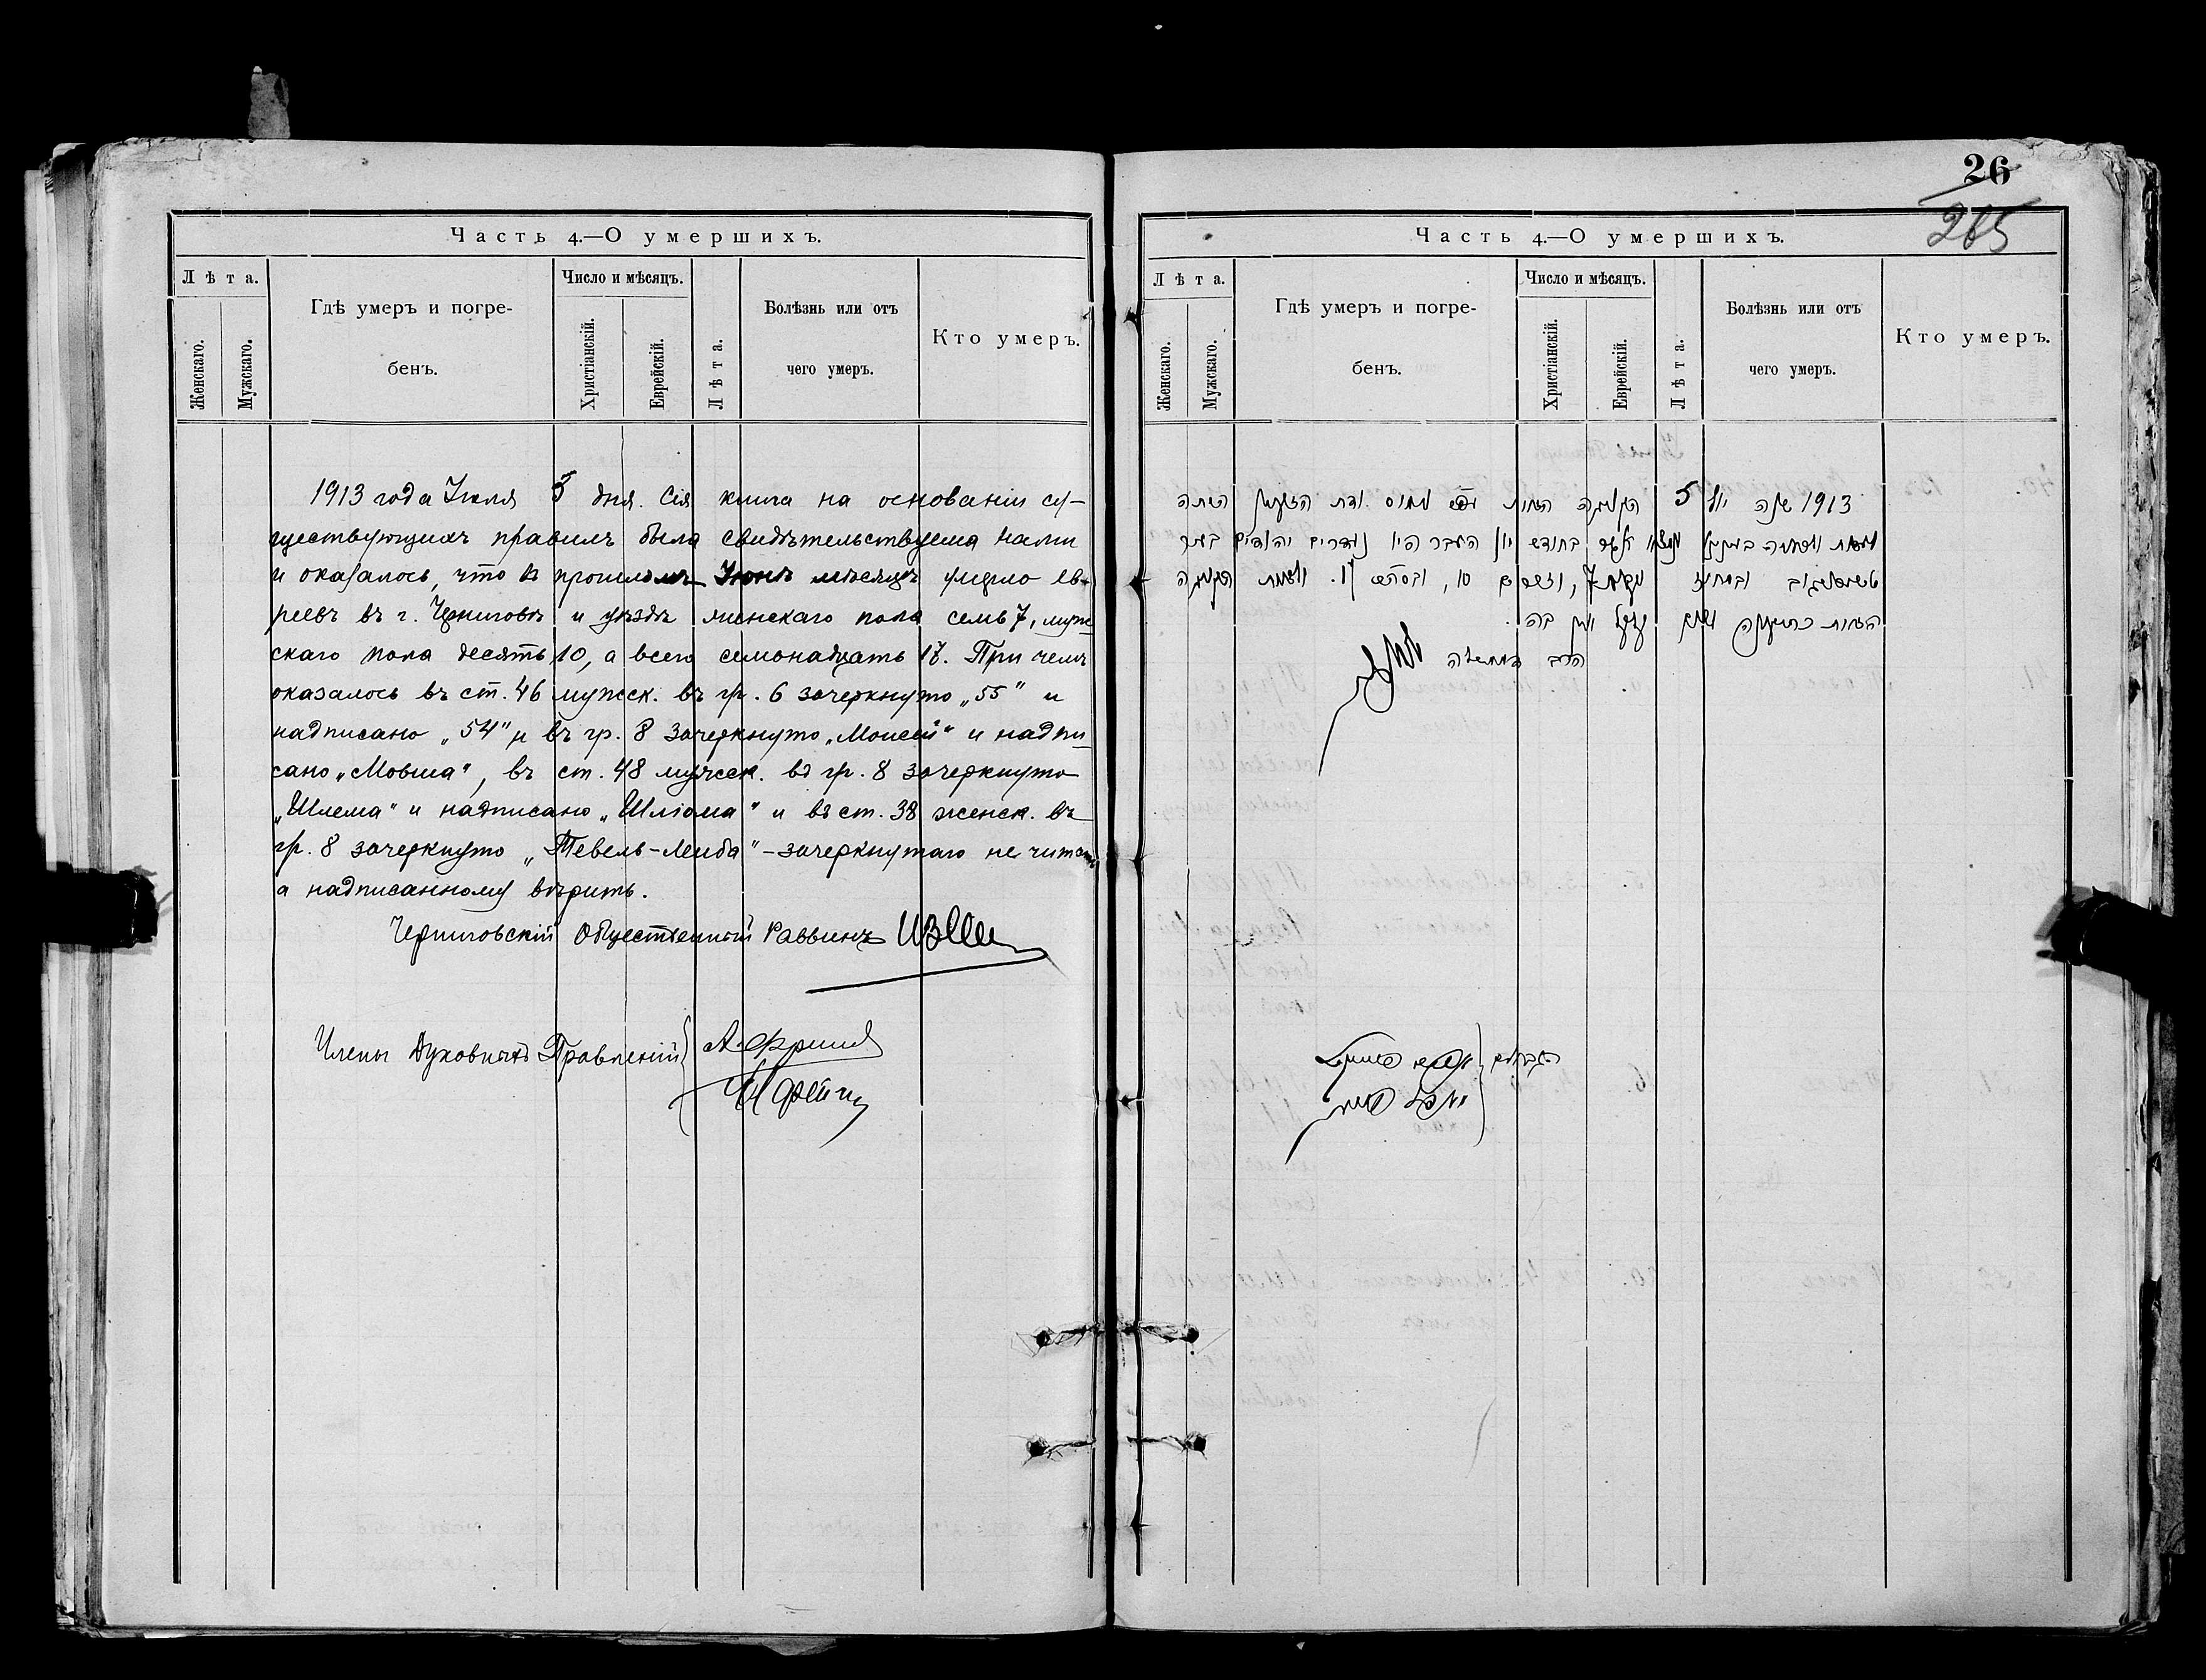 Часть 4.—О умершихъ.
Лѣта.
Женскаго.
Мужскаго.
Гдѣ умеръ и погре-
бенъ.
Число и мѣсяцъ.
Христіанскій.
Еврейскій.
Лѣта.
Болѣзнь или отъ
чего умеръ.
Кто умеръ.
1913 года Іюля 5 дня. Сія книга на основаніи су-
ществующихъ правилъ была свидѣтельствуема нами
и оказалось, что въ прошломъ Іюнѣ мѣсяцѣ умерло ев-
реевъ въ г. Черниговѣ и уѣздѣ женскаго пола семь 7, муж-
скаго пола десять 10, а всего семонадцать 17. При чемъ
оказалось въ ст. 46 мужск. въ гр. 6 зачеркнуто „55" и
надписано „54" и въ гр. 8 зачеркнуто „Моисей" и надпи-
сано „Мовша", въ ст. 48 мужск. въ гр. 8 зачеркнуто
„Шлема" и надписано „Шліома" и въ ст. 38 женск. въ
гр. 8 зачеркнуто „Тевель-Лейба" – зачеркнутаго не читать
а надписанному вѣрить.
Черниговскій Общественный Раввинъ
Члены Духовныхъ Правленій
26
265
Часть 4.—О умершихъ.
Лѣта.
Женскаго.
Мужскаго.
Гдѣ умеръ и погре-
бенъ.
Число и мѣсяцъ.
Христіанскій.
Еврейскій.
Лѣта.
Болѣзнь или отъ
чего умеръ.
Кто умеръ.
1913 שנה יולי 5 הפנקסה הזאת היתה
בחודש יון העבר היו נעדרים יהודים בעיר
טשערניגוב 7, וזכרים 10, ובסה״כ 17.
הזאת
הרב
הגבאים